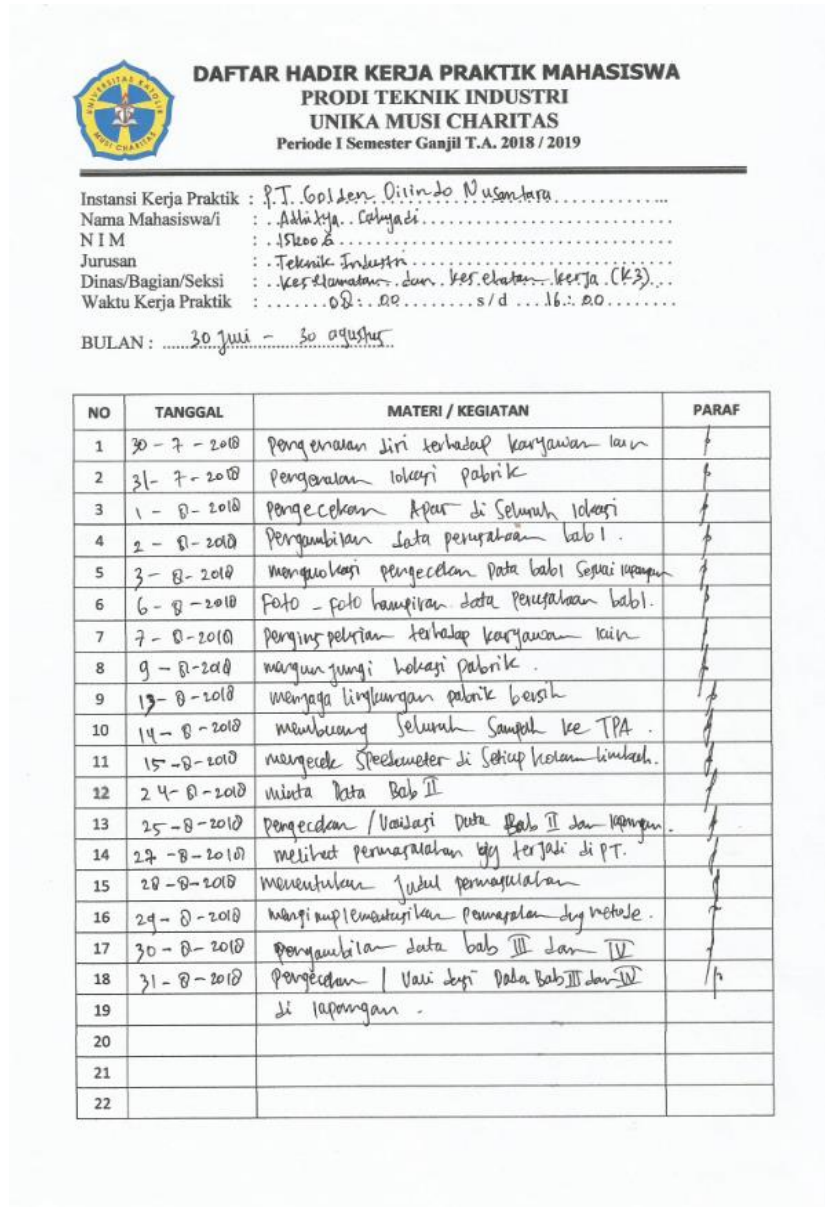 UNIVERSITAS KATOLIK
MUSI CHARITAS
DAFTAR HADIR KERJA PRAKTIK MAHASISWA
PRODI TEKNIK INDUSTRI
UNIKA MUSI CHARITAS
Periode I Semester Ganjil T.A. 2018 / 2019
Instansi Kerja Praktik : P.T. Golden Oilindo Nusantara
Nama Mahasiswa/i : Adhitya Cahyadi
N I M :
Jurusan : Teknik Industri
Dinas/Bagian/Seksi : Keselamatan dan Kesehatan Kerja (K3)
Waktu Kerja Praktik : 08 : 00 s/d 16 : 00
BULAN : 30 Juli - 30 agustus
NO TANGGAL MATERI / KEGIATAN PARAF
1 30 - 7 - 2018 Pengenalan diri terhadap karyawan lain
2 31 - 7 - 2018 Pengenalan lokasi pabrik
3 1 - 8 - 2018 Pengecekan Apar di Seluruh lokasi
4 2 - 8 - 2018 Pengambilan data perusahaan bab 1.
5 3 - 8 - 2018 pengecekan Data bab1 Sesuai lapangan
6 6 - 8 - 2018 Foto - foto lampiran data Perusahaan bab1.
7 7 - 8 - 2018 terhadap karyawan lain
8 9 - 8 - 2018 mengunjungi Lokasi pabrik.
9 13 - 8 - 2018 menjaga lingkungan pabrik bersih
10 14 - 8 - 2018 membuang Seluruh Sampah ke TPA.
11 15 - 8 - 2018 mengecek Speedometer di Setiap kolam limbah.
12 24 - 8 - 2018 minta Data Bab II
13 25 - 8 - 2018 pengecekan / Validasi Data Bab II dan lapangan.
14 27 - 8 - 2018 melihat permasalahan yg terjadi di PT.
15 28 - 8 - 2018 menentukan Judul permasalahan
16 29 - 8 - 2018 mengimplementasikan permasalan dng metode.
17 30 - 8 - 2018 pengambilan data bab III dan IV
18 31 - 8 - 2018 Pengecekan / Vali dasi Data Bab III dan IV
19 di lapangan.
20
21
22